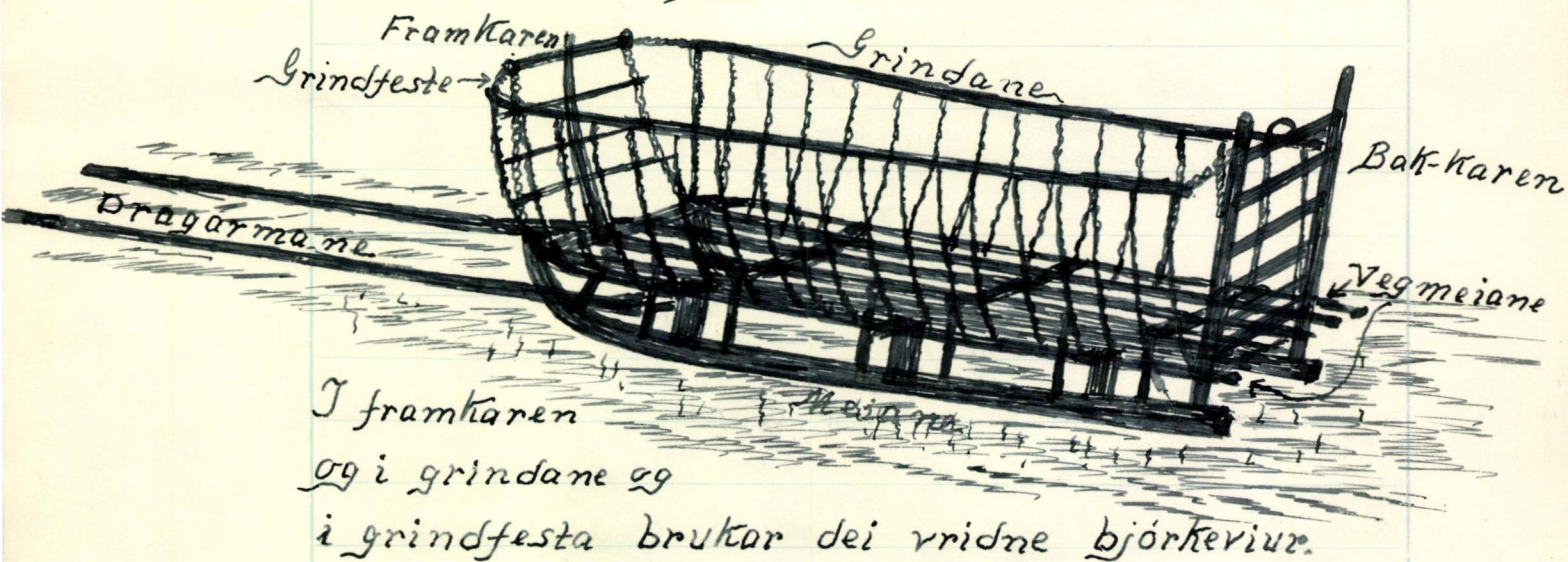 Framkaren
Grindfeste
Grindane
Bak-karen
Dragarmane
Vegmeiane
Meiane
I framkaren
og i grindane og
i grindfesta brukar dei vridne bjórkeviur.